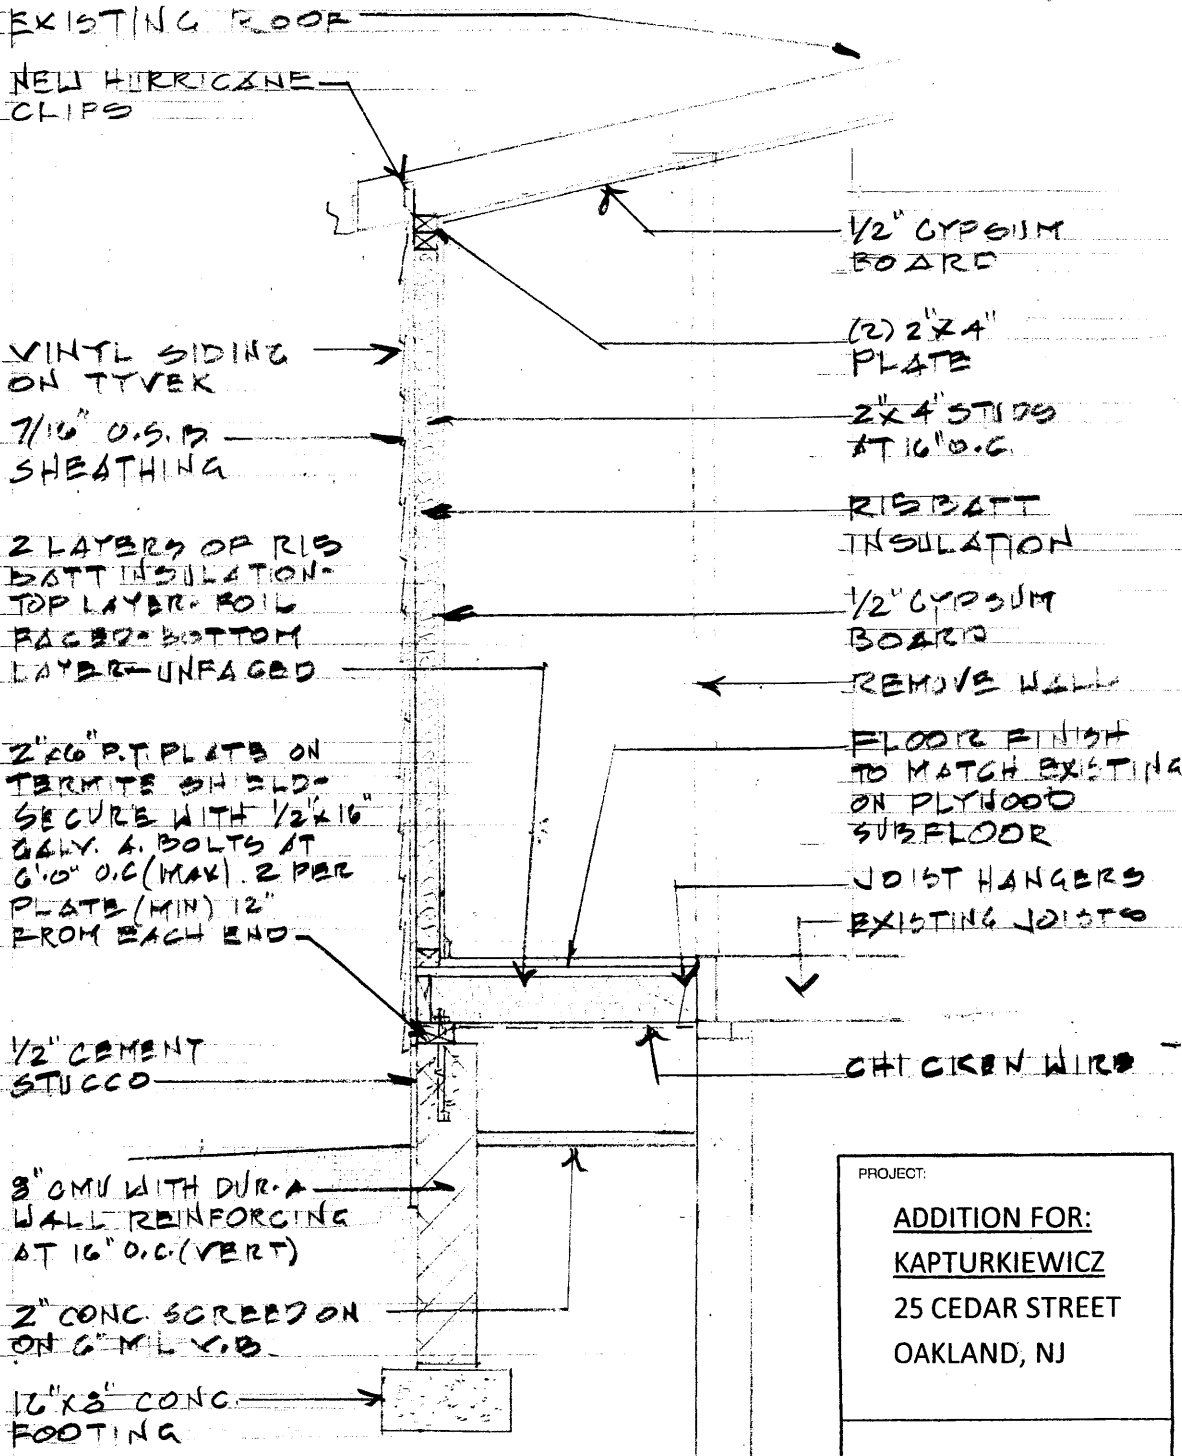 EXISTING ROOF
NEW HURRICANE
CLIPS
VINYL SIDING
ON TYVEK
7/16" O.S.B.
SHEATHING
2 LAYERS OF R15
BATT INSULATION-
TOP LAYER- FOIL
FACED- BOTTOM
LAYER-UNFACED
2"x6" P.T. PLATE ON
TERMITE SHIELD-
SECURE WITH 1/2"x16"
GALV. A. BOLTS AT
6'-0" O.C (MAX). 2 PER
PLATE (MIN) 12"
FROM EACH END
1/2" CEMENT
STUCCO
8" CMU WITH DUR-A
WALL REINFORCING
AT 16" O.C. (VERT)
2" CONC. SCREED ON
ON 6" MIL V.B.
16"x8" CONC.
FOOTING
1/2" GYPSUM
BOARD
(2) 2"x4"
PLATE
2"x4" STUDS
AT 16" O.C.
R15 BATT
INSULATION
1/2" GYPSUM
BOARD
REMOVE WALL
FLOOR FINISH
TO MATCH EXISTING
ON PLYWOOD
SUBFLOOR
JOIST HANGERS
EXISTING JOISTS
CHICKEN WIRE
PROJECT:
ADDITION FOR:
KAPTURKIEWICZ
25 CEDAR STREET
OAKLAND, NJ